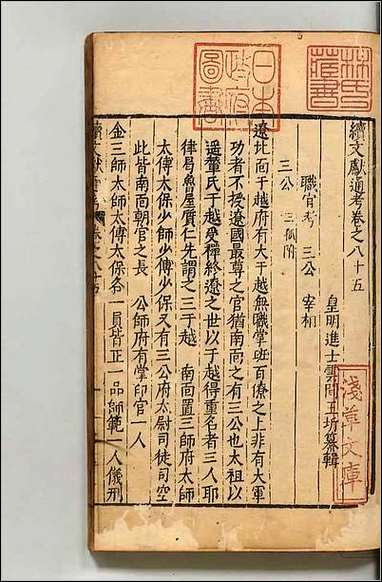 續文獻通考卷之八十五
皇明進士雲間王圻纂輯
職官考 三公 宰相
三公 三孤附
遼北面于越府有大于越無職掌班百僚之上非有大軍
功者不授遼國最尊之官猶南面之有三公也太祖以
遥輦氏于越受禪終遼之世以于越得重名者三人耶
律曷魯屋質仁先謂之三于越 南面置三師府太師
太傅太保少師少傅少保又有三公府太尉司徒司空
此皆南面朝官之長 公師府有掌印官一人
金三師太師太傅太保各一員皆正一品師範一人儀刑
林氏藏書
日本政府圖書
淺草文庫